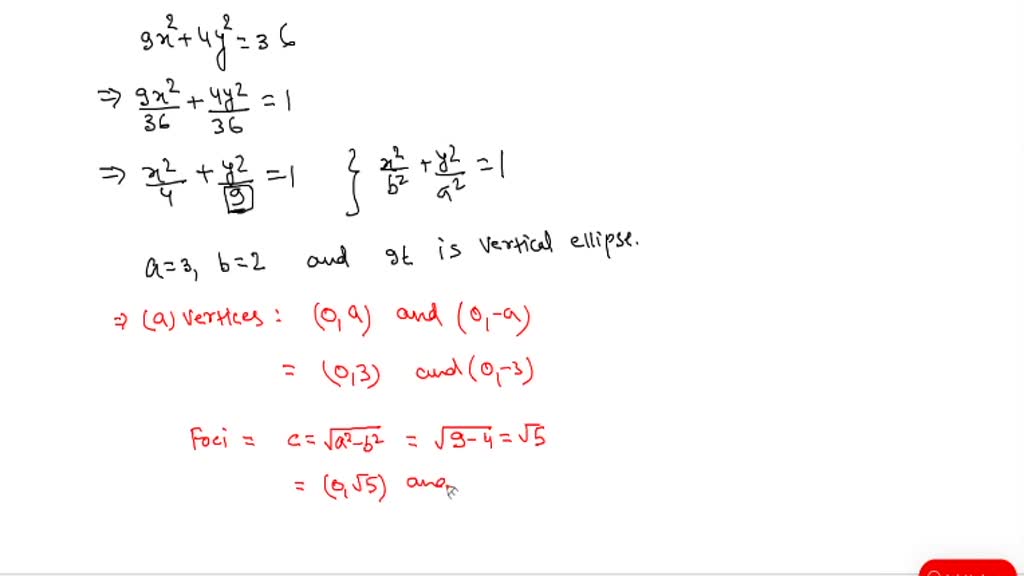 9x² + 4y² = 36
⇒ 9x²/36 + 4y²/36 = 1
⇒ x²/4 + y²/9 = 1 } x²/b² + y²/a² = 1
a=3, b=2 and It is vertical ellipse.
⇒ (a) vertices : (0,a) and (0,-a)
= (0,3) and (0,-3)
Foci = c = √a²-b² = √9-4 = √5
= (0,√5) and